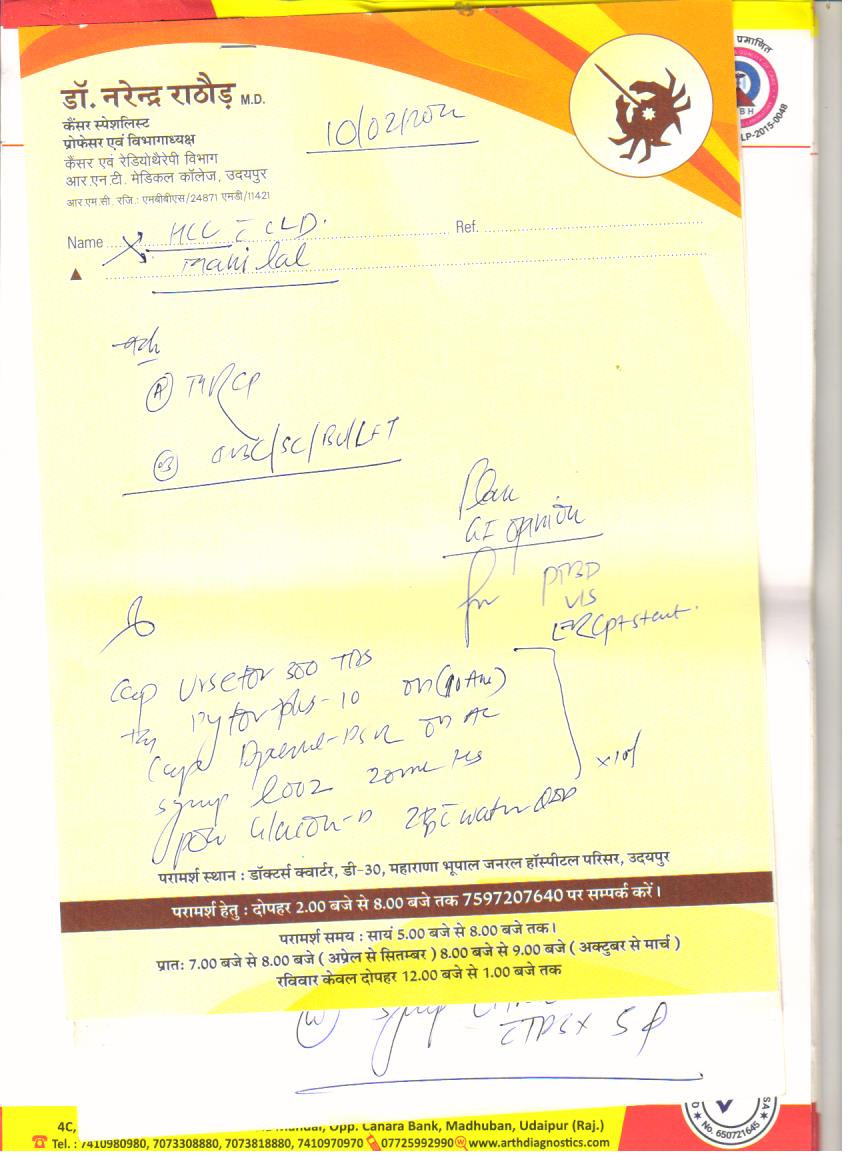 डॉ. नरेन्द्र राठौड़ M.D.
कैंसर स्पेशलिस्ट
प्रोफेसर एवं विभागाध्यक्ष
कैंसर एवं रेडियोथैरेपी विभाग
आर.एन.टी. मेडिकल कॉलेज, उदयपुर
आर.एम.सी. रजि.: एमबीबीएस/24871 एमडी/11421
प्रमाणित
LP-2015-0048
Name HCC c CLD.
Ref.
Mani lal
(A) MRCP
CBC/SC/BU/LFT
Plan
GI opinion
for PTBD
v/s
ERCP + stent.
Cap 300 TDS
10 on
Cap DSR on AC
Syrup HS
x 10
pow Glucon-D water
परामर्श स्थान : डॉक्टर्स क्वार्टर, डी-30, महाराणा भूपाल जनरल हॉस्पीटल परिसर, उदयपुर
परामर्श हेतु : दोपहर 2.00 बजे से 8.00 बजे तक 7597207640 पर सम्पर्क करें।
परामर्श समय : सायं 5.00 बजे से 8.00 बजे तक।
प्रातः 7.00 बजे से 8.00 बजे ( अप्रेल से सितम्बर ) 8.00 बजे से 9.00 बजे ( अक्टुबर से मार्च )
रविवार केवल दोपहर 12.00 बजे से 1.00 बजे तक
4C, Opp. Canara Bank, Madhuban, Udaipur (Raj.)
Tel. : 7410980980, 7073308880, 7073818880, 7410970970 07725992990 www.arthdiagnostics.com
No. 650721645